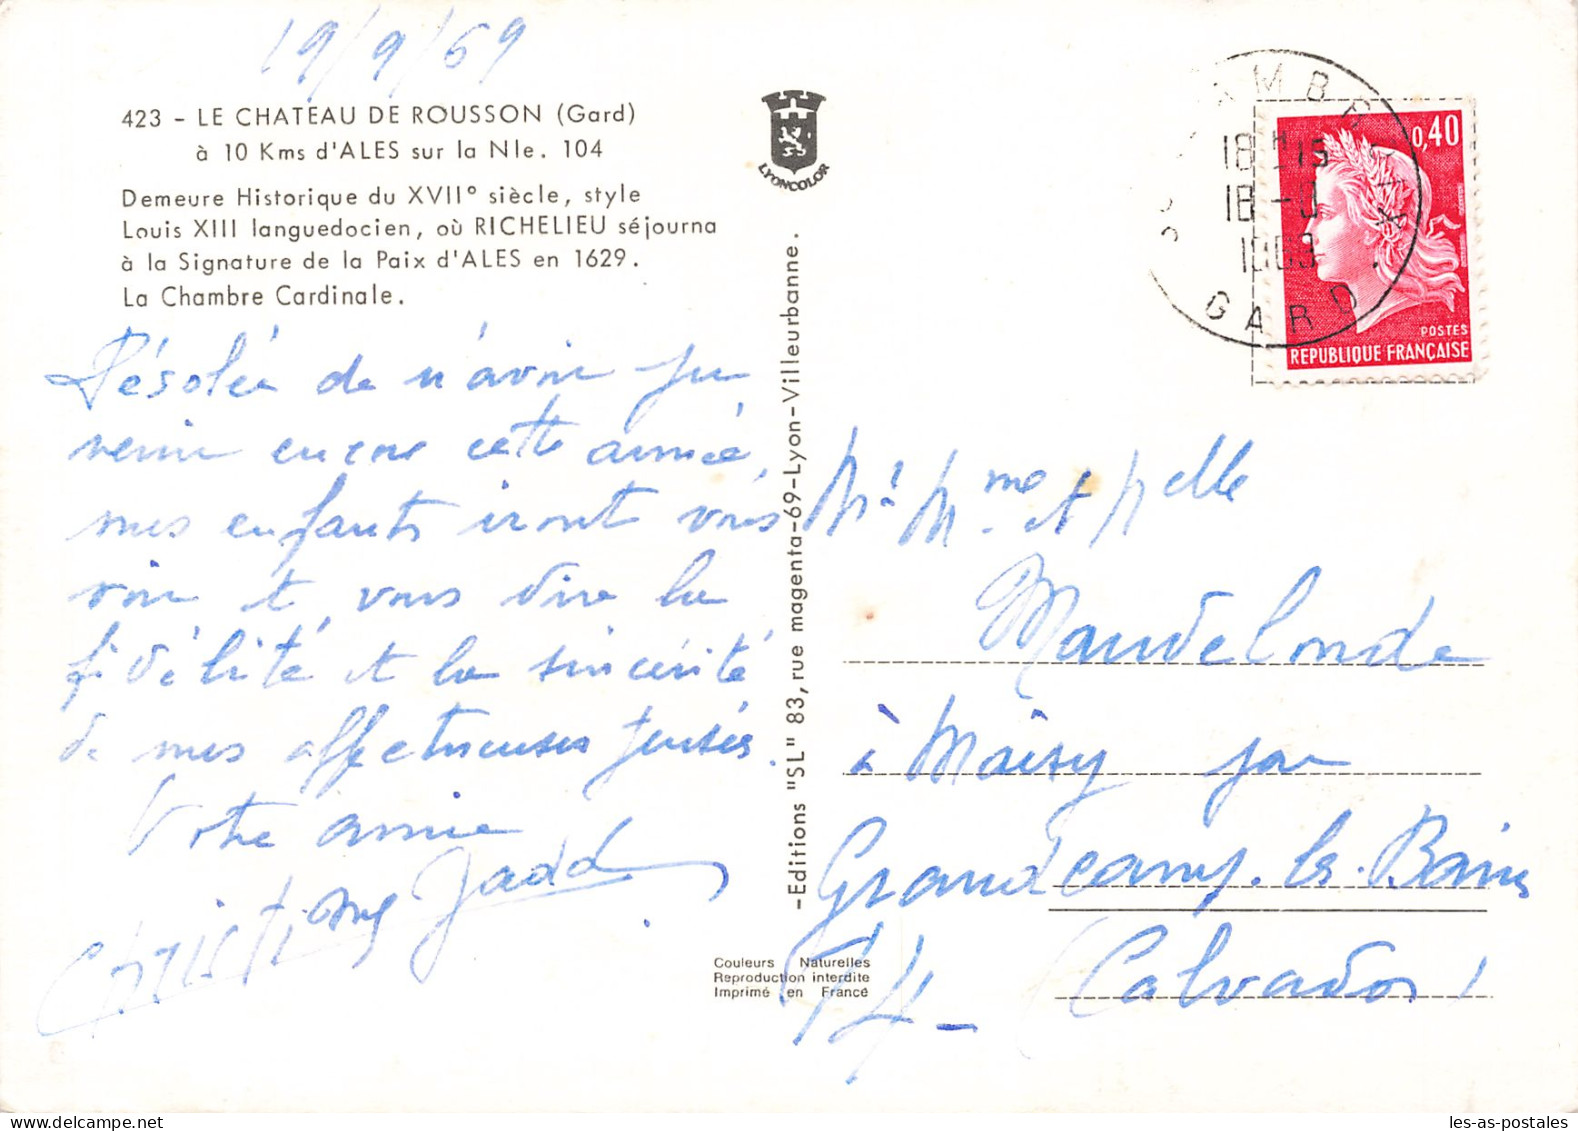 19/9/69
423 - LE CHATEAU DE ROUSSON (Gard)
à 10 Kms d'ALES sur la Nle. 104
Demeure Historique du XVII° siècle, style
Louis XIII languedocien, où RICHELIEU séjourna
à la Signature de la Paix d'ALES en 1629.
La Chambre Cardinale.
Désolée de n'avoir pu
venir encore cette année,
mes enfants iront vous
voir et vous dire la
fidélité et la sincérité
de mes affectueuses pensées.
Votre amie
Christiane
LYONCOLOR
-Editions "SL" 83, rue magenta-69-Lyon-Villeurbanne.
Couleurs Naturelles
Reproduction interdite
Imprimé en France
18 H 15
18 -
GARD
0,40
POSTES
REPUBLIQUE FRANÇAISE
Mr Mme et Melle
Maudelonde
à Maisy par
Grandcamp-les-Bains
14 - Calvados
les-as-postales